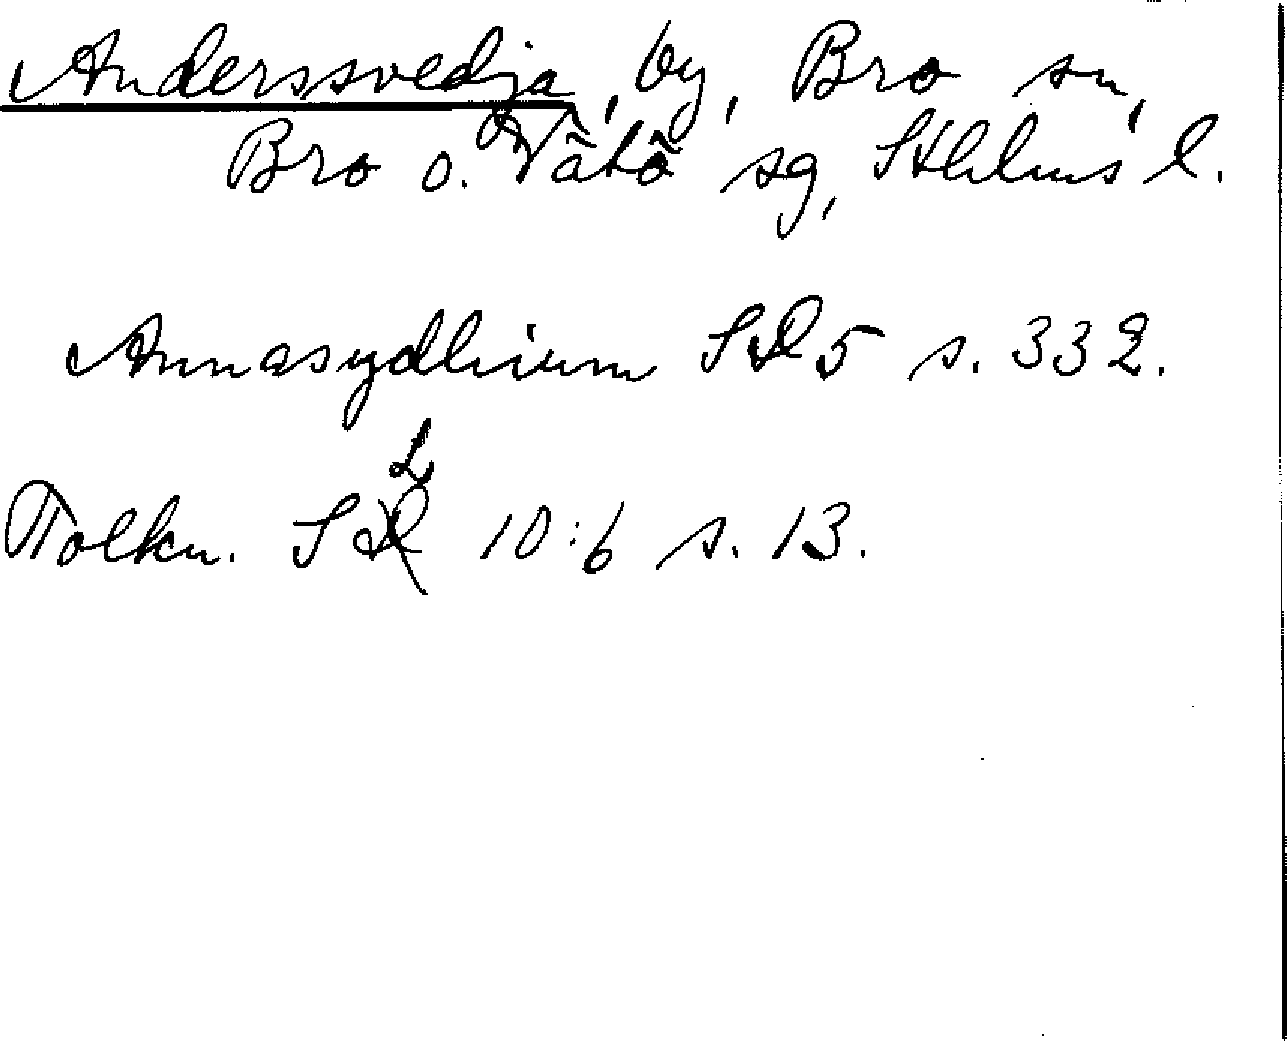 Anderssvedja, by, Bro sn,
Bro o. Vätö sg, Sthlms l.
Annasydhium SD 5 s. 332.
Tolkn. SL 10:6 s. 13.